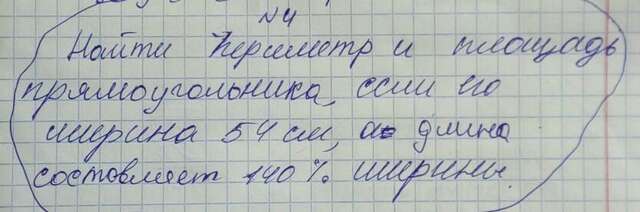 №4
Найти периметр и площадь
прямоугольника, если его
ширина 54 см, а длина
составляет 140% ширины.